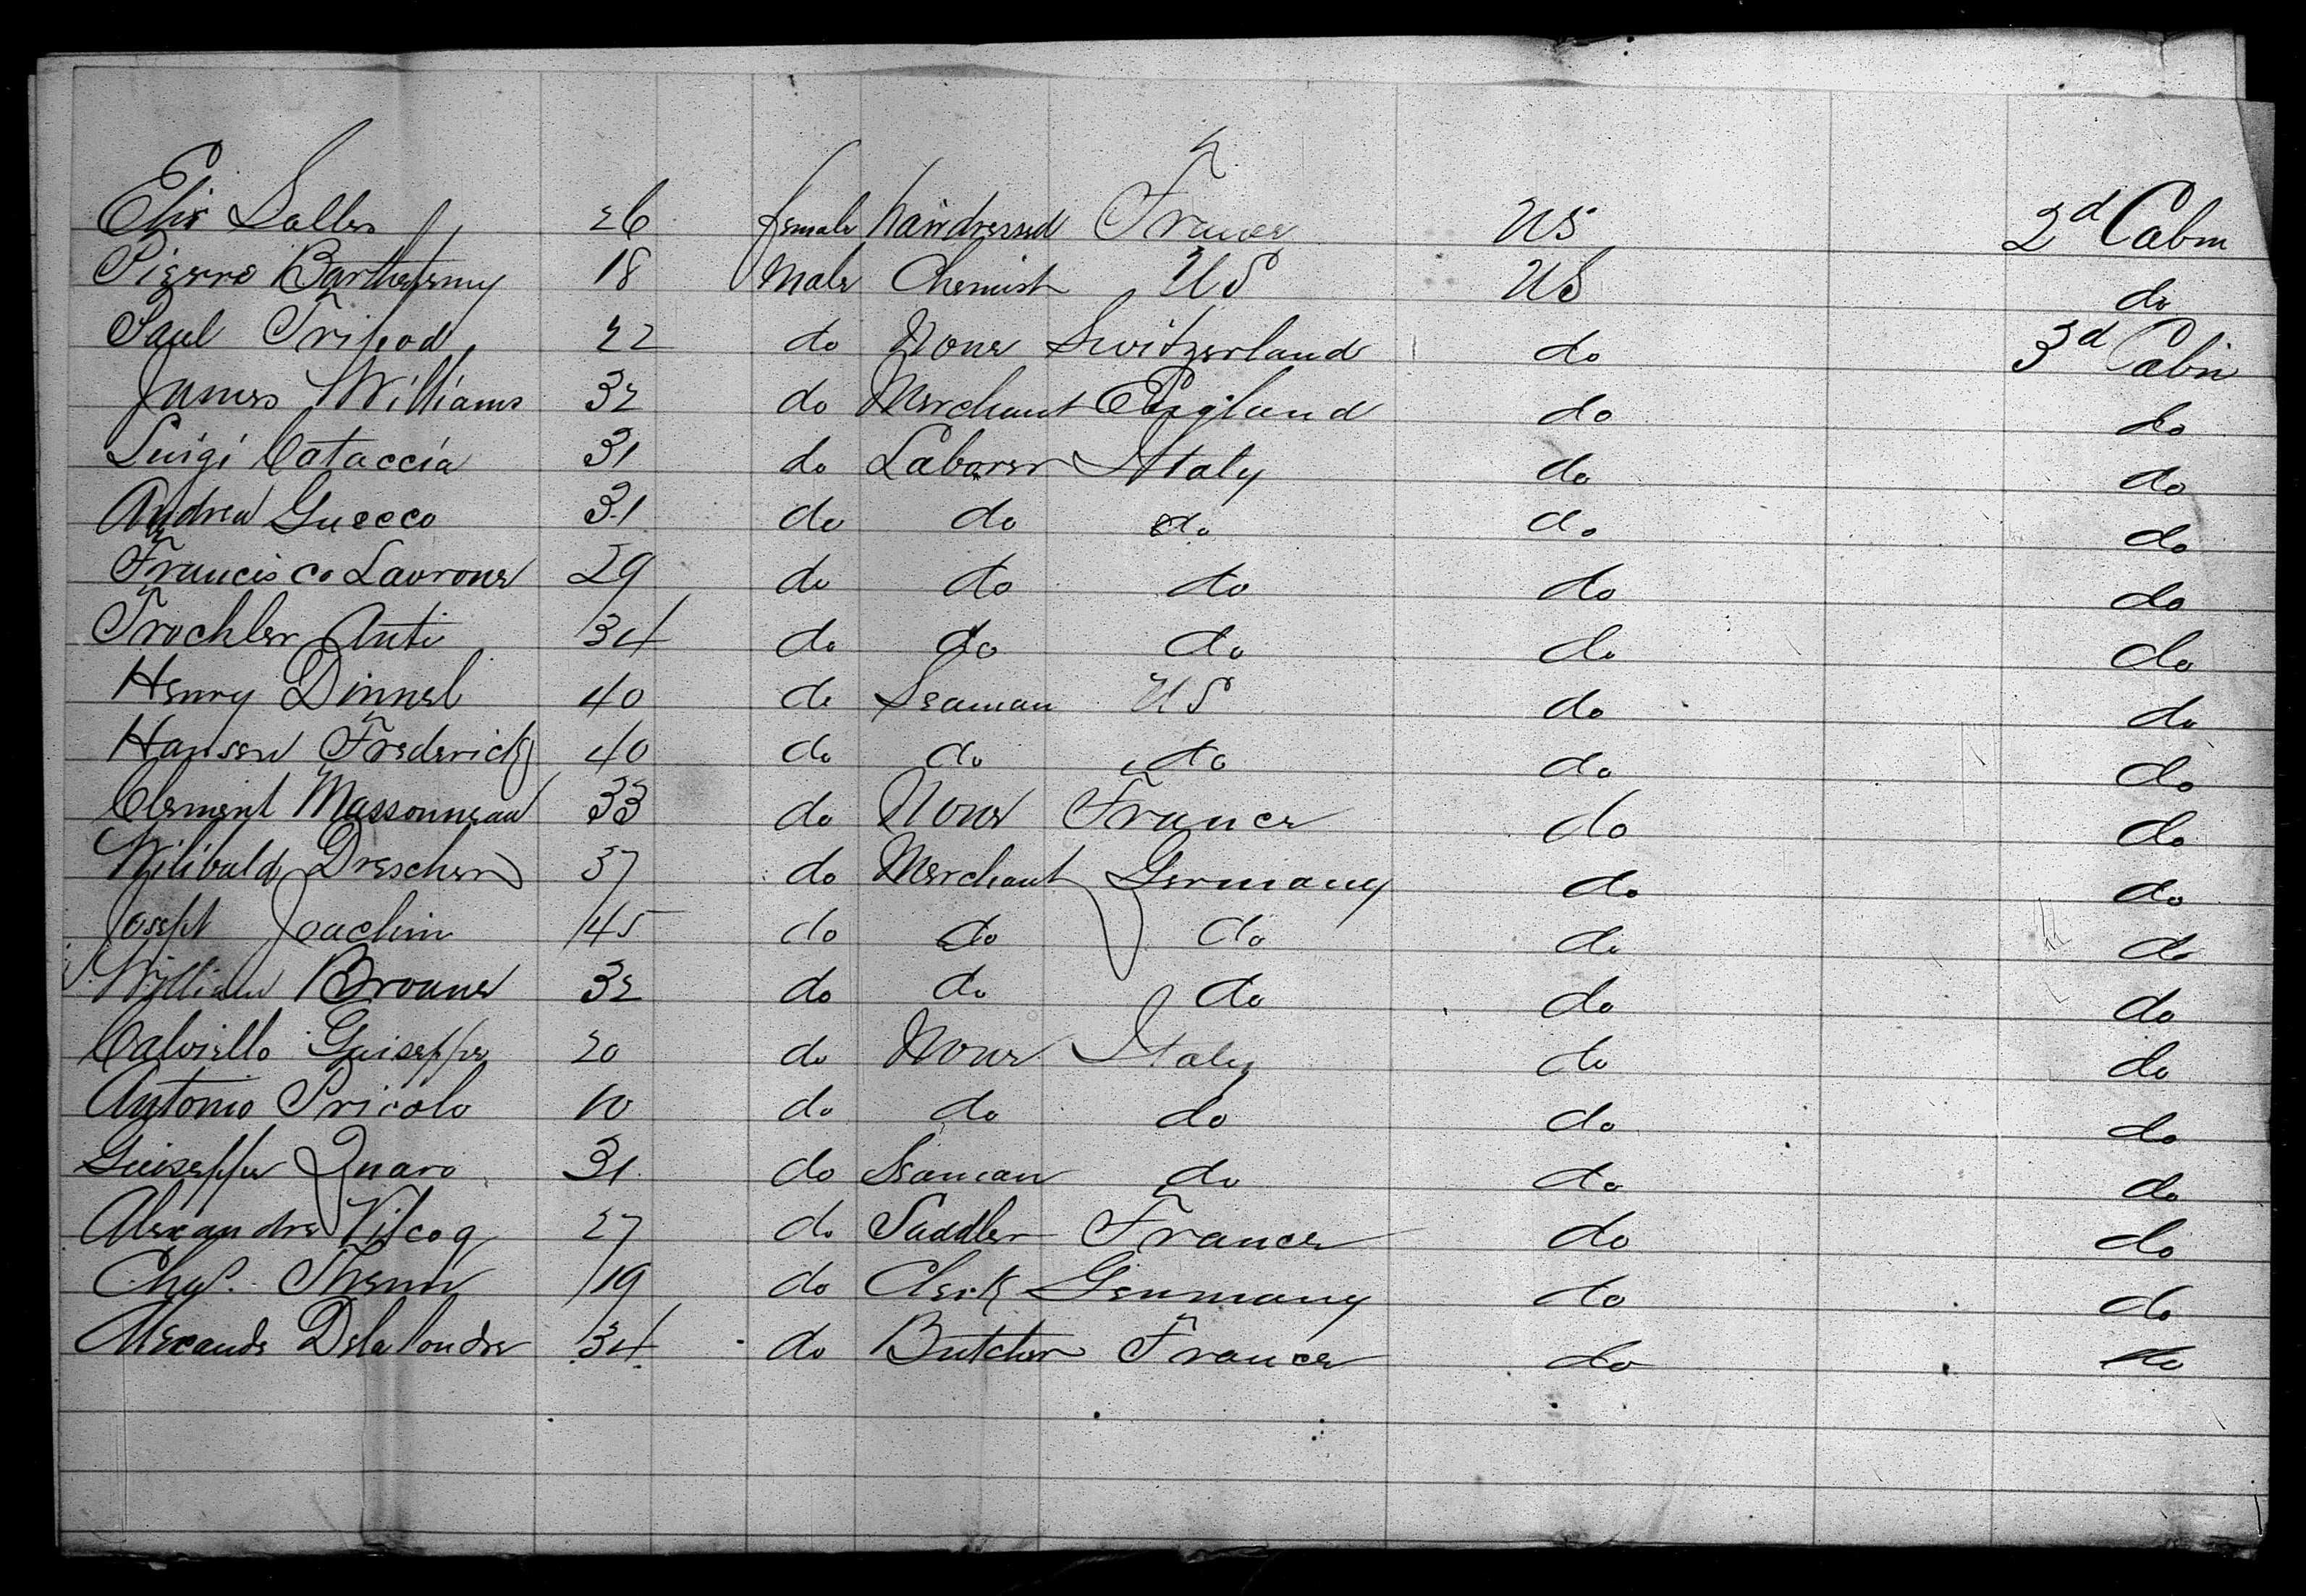 Elis Salles 26 female hairdressed France US 2d Cabin
Pierre Barthelemy 18 Male Chemist US US do
Paul Tripod 22 do None Switzerland do 3d Cabin
James Williams 32 do Merchant England do do
Luigi Cataccia 31 do Laborer Italy do do
Andrea Guecco 31 do do do do do
Francisco Lavrone 29 do do do do do
Trochler Anti 34 do do do do do
Henry Dinnel 40 do Seaman US do do
Hansen Frederick 40 do do do do do
Clement Massonneau 33 do None France do do
Wilibald Drescher 37 do Merchant Germany do do
Joseph Joachim 45 do do do do do
William Broune 32 do do do do do
Calviello Guiseppe 20 do None Italy do do
Antonio Pricolo 10 do do do do do
Guiseppe Quaro 31 do Seaman do do do
Alexandre Vilcoq 27 do Saddler France do do
Chas. 19 do Clerk Germany do do
Alexandre Delalondre 34 do Butcher France do do